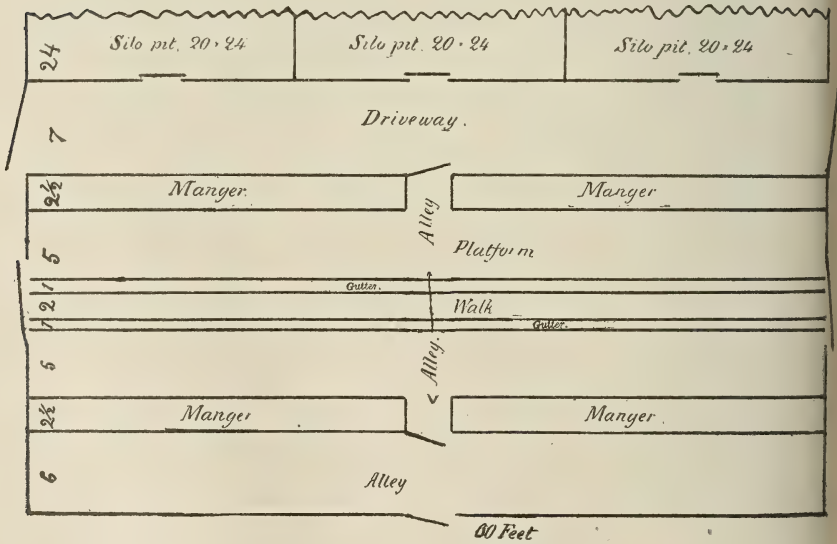 24 Silo pit. 20×24 Silo pit. 20×24 Silo pit. 20×24
7 Driveway.
2½ Manger. Manger
Alley
5 Platform
1 Gutter.
2 Walk
1 Gutter.
5 Alley.
2½ Manger Manger
6 Alley
60 Feet